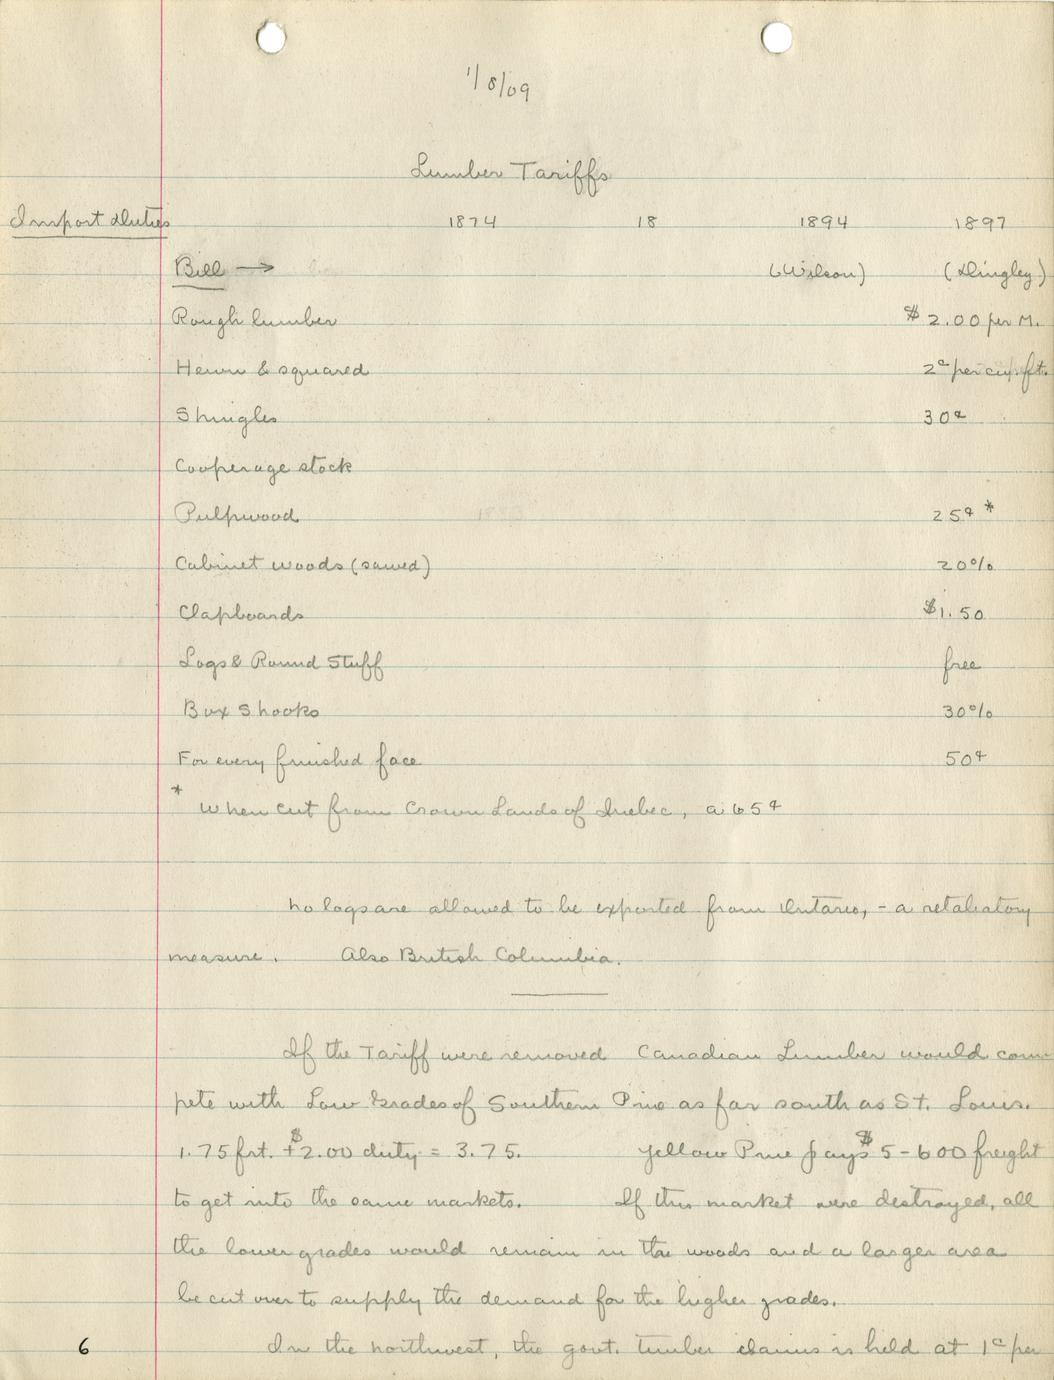 1/8/09
Lumber Tariffs
Import Duties 1874 18 1894 1897
Bill → (Wilson) (Dingley)
Rough lumber $2.00 per M.
Hewn & squared 2¢ per cu. ft.
Shingles 30¢
Cooperage stock
Pulpwood 25¢ *
Cabinet woods (sawed) 20%
Clapboards $1.50
Logs & Round Stuff free
Box Shooks 30%
For every finished face 50¢
* When cut from Crown Lands of Quebec, a 65¢
No logs are allowed to be exported from Ontario, - a retaliatory
measure. Also British Columbia.
If the Tariff were removed Canadian Lumber would com-
pete with Low Grades of Southern Pine as far south as St. Louis.
1.75 frt. + $2.00 duty = 3.75. Yellow Pine pays $5-600 freight
to get into the same markets. If this market were destroyed, all
the lower grades would remain in the woods and a larger area
be cut over to supply the demand for the higher grades.
6 In the northwest, the govt. timber claims is held at 1¢ per